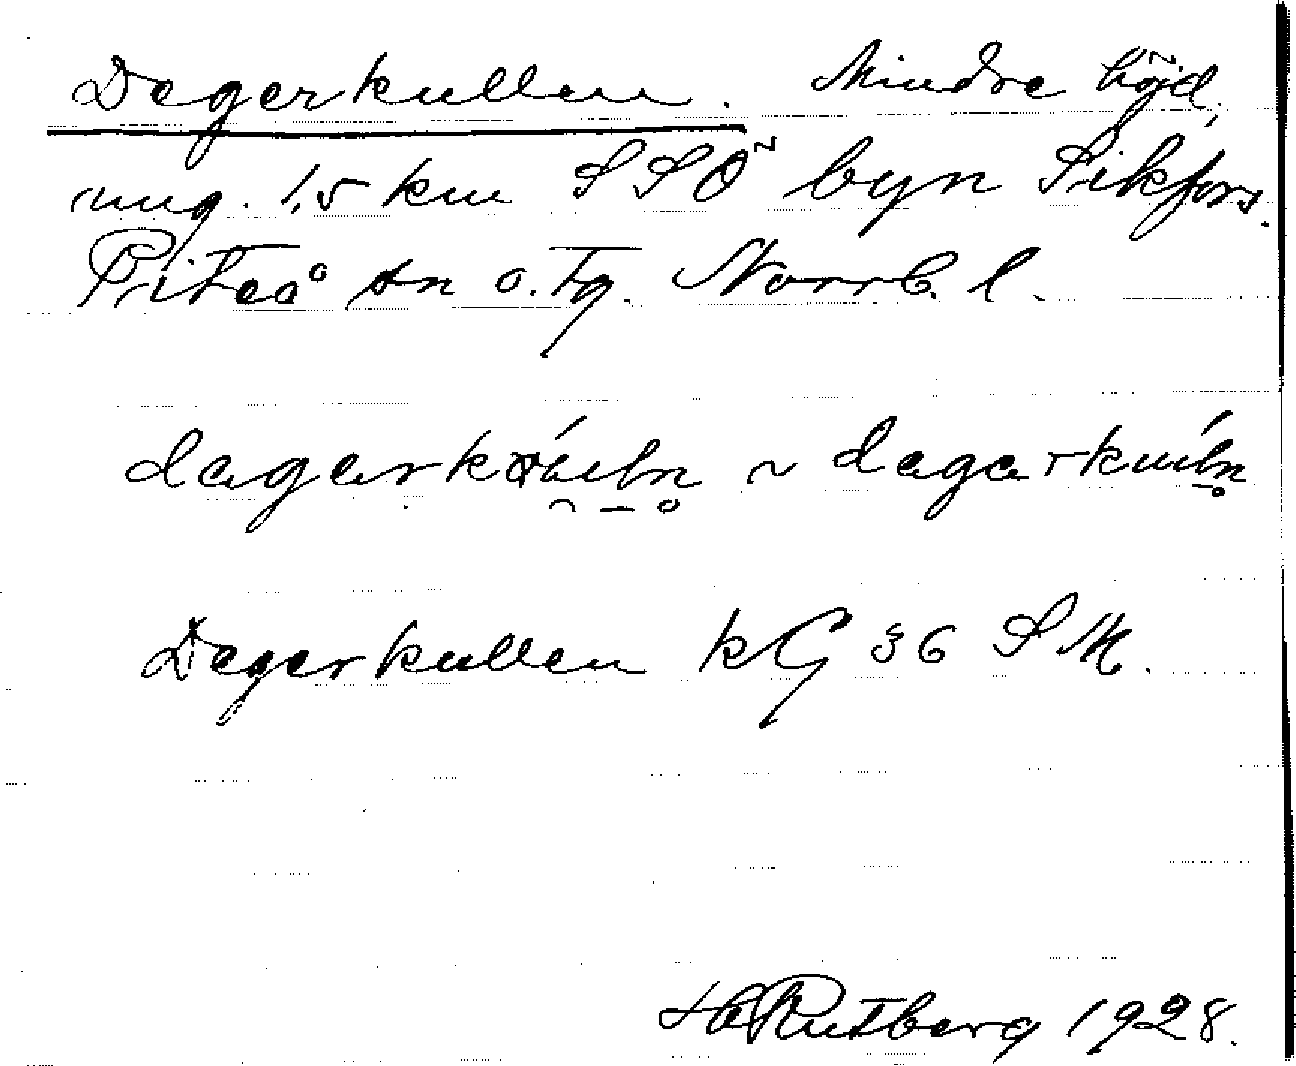 Degerkullen. Mindre höjd,
ung. 1,5 km SSÖ byn Sikfors.
Piteå sn o. tg. Norrb. l.
Degerkullen kG §6 SM.
H Rutberg 1928.